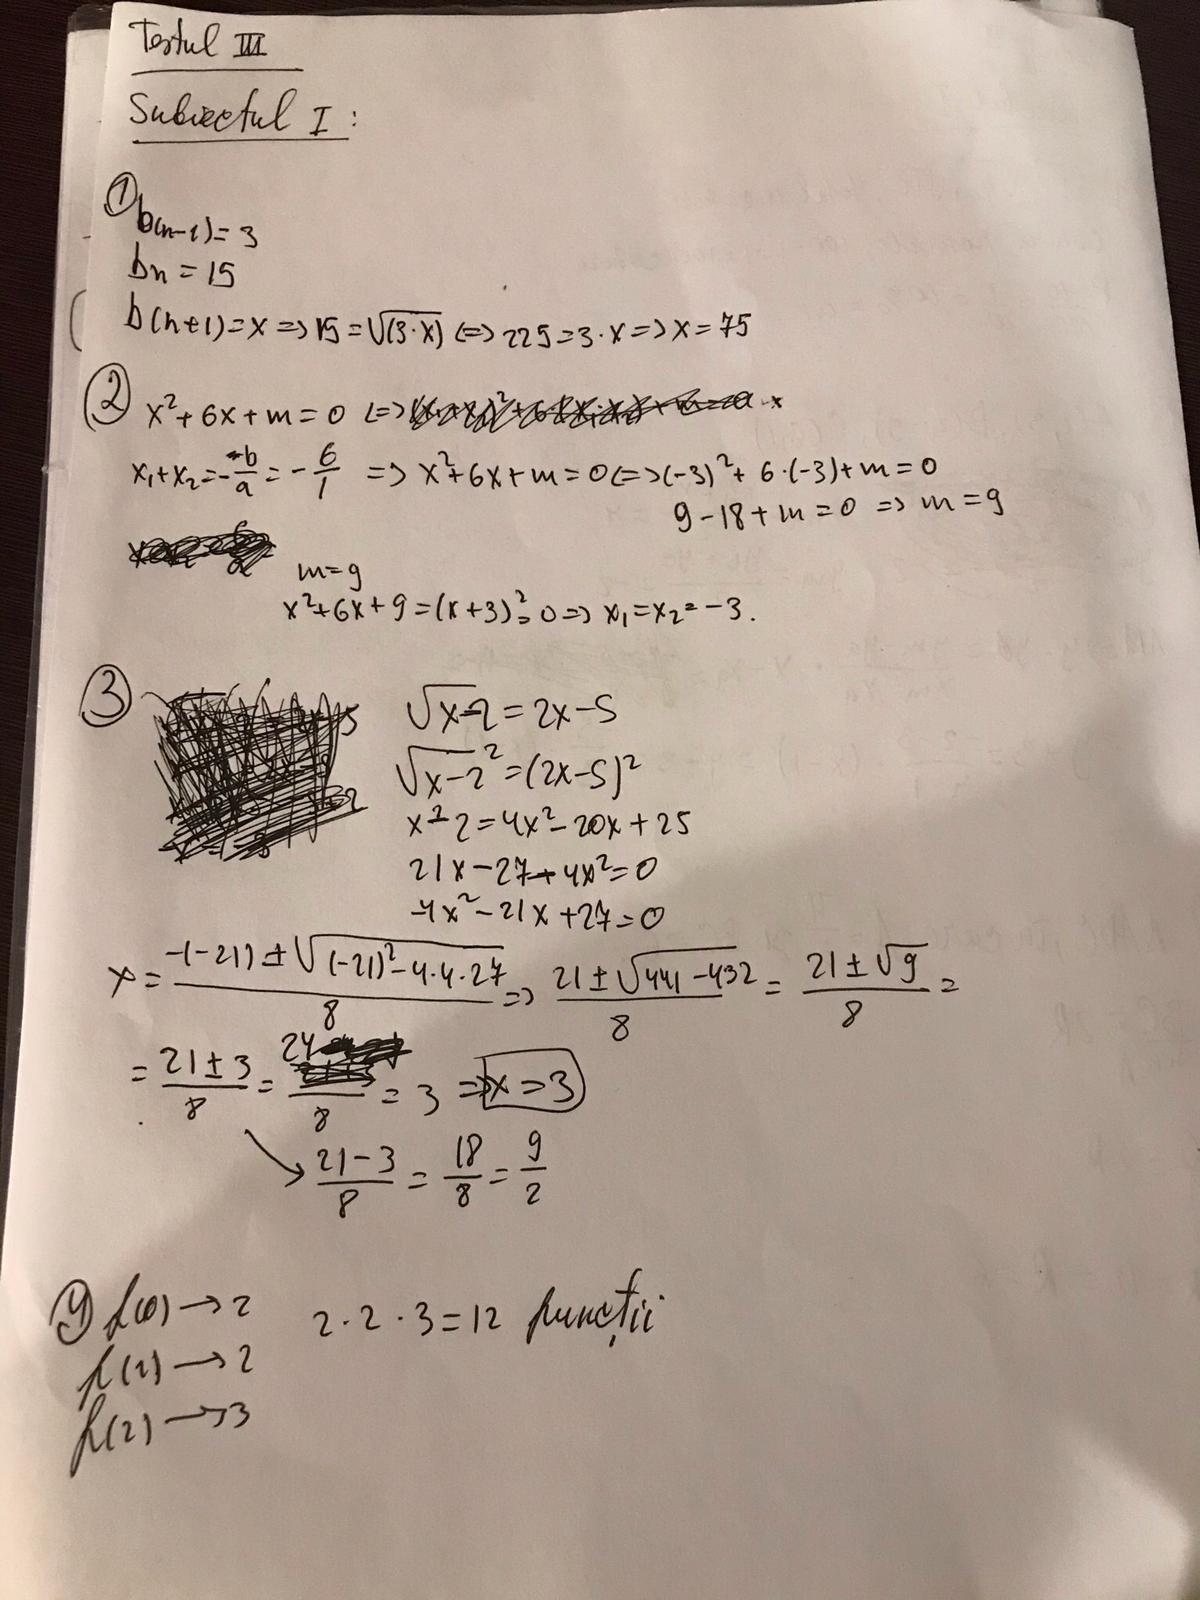 Testul III
Subiectul I:
①
b(n-1)=3
bn = 15
b(n+1)=x => 15=√(3·x) <=> 225=3·x => x=75
② x²+6x+m=0 <=>
x₁+x₂=-b/a=-6/1 => x²+6x+m=0 <=> (-3)²+6·(-3)+m=0
9-18+m=0 => m=9
m=9
x²+6x+9=(x+3)²=0 => x₁=x₂=-3.
③ √x-2=2x-5
√x-2²=(2x-5)²
x-2=4x²-20x+25
21x-27-4x²=0
4x²-21x+27=0
x=-(-21)±√(-21)²-4·4·27/8 => 21±√441-432/8=21±√9/8=
=21±3/8=24/8=3 => x=3
21-3/8=18/8=9/2
④ f(0)→2 2·2·3=12 funcții
f(1)→2
f(2)→3